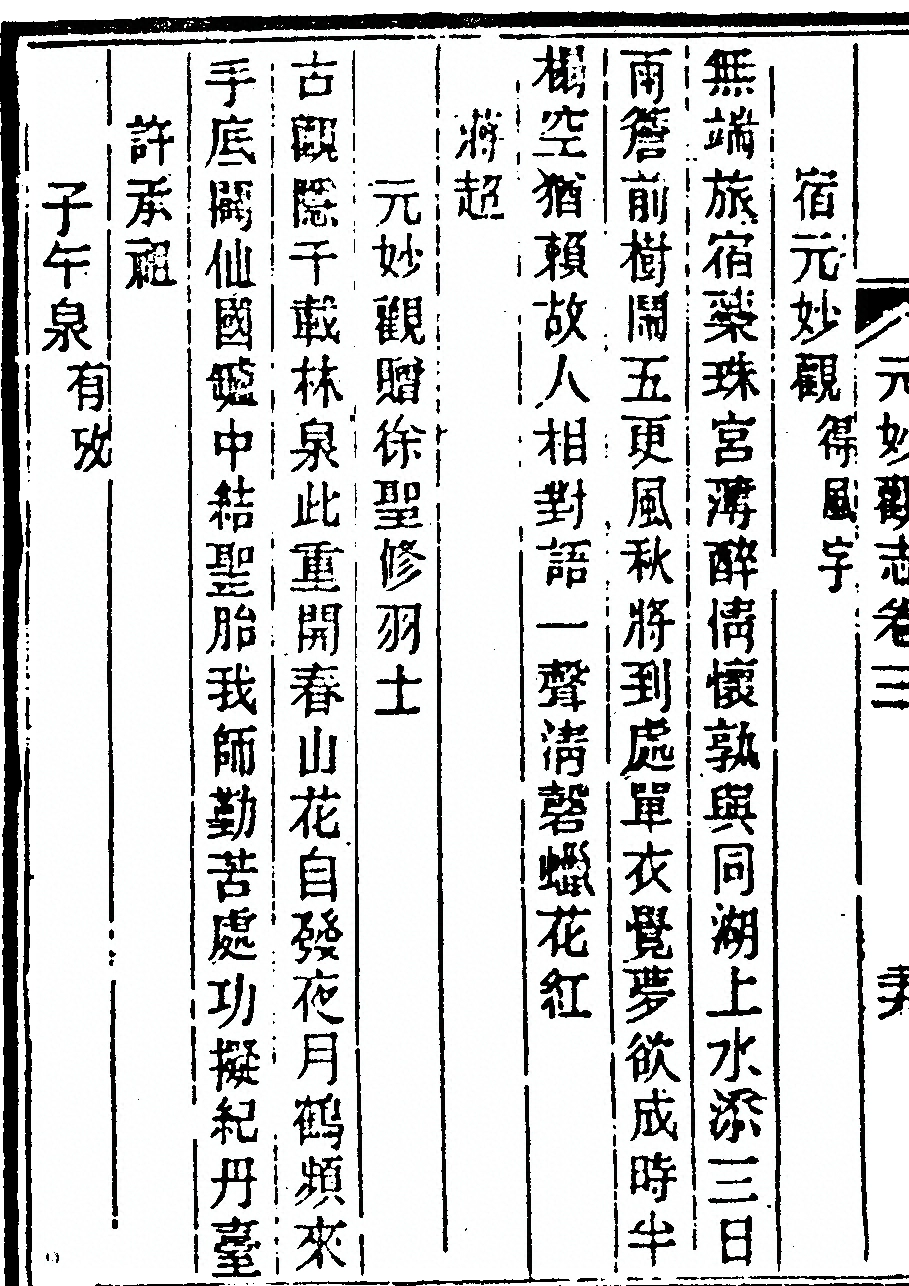 元妙觀志卷三
宿元妙觀 得風字
無端旅宿蘂珠宮薄醉情懷孰與同湖上水添三日
雨簷前樹鬧五更風秋將到處單衣覺夢欲成時半
榻空猶賴故人相對語一聲淸磬蠟花紅
蔣超
元妙觀贈徐聖修羽士
古觀隱千載林泉此重開春山花自發夜月鶴頻來
手底闢仙國爐中結聖胎我師勤苦處功擬紀丹臺
許承祖
子午泉 有攷